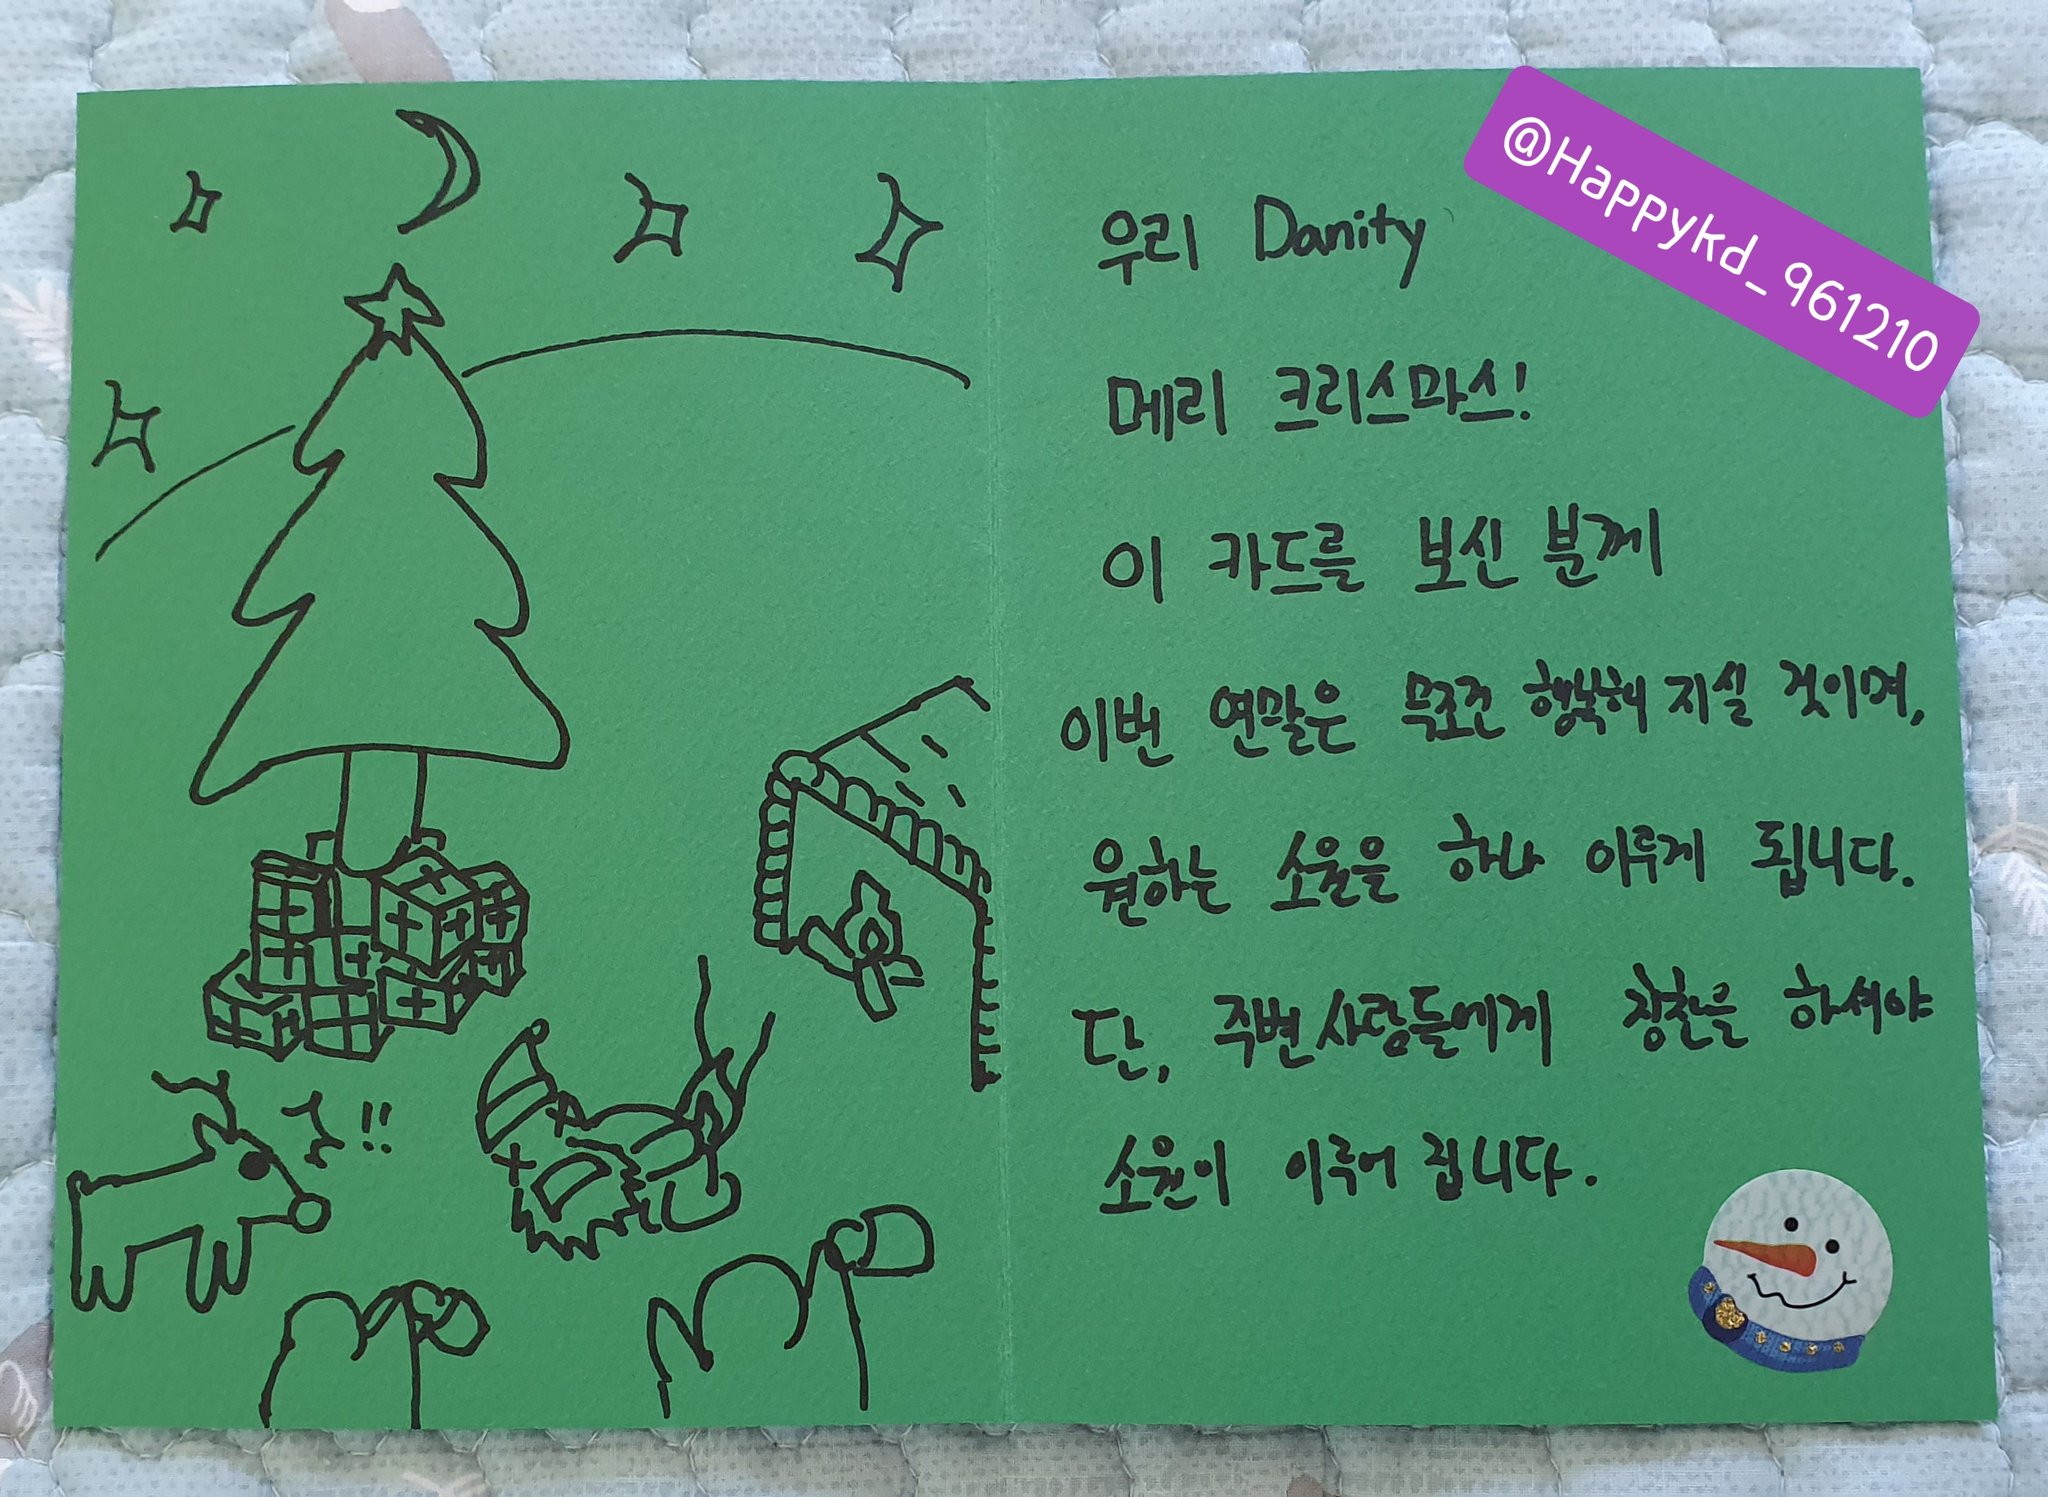 @Happykd_961210
우리 Danity
메리 크리스마스!
이 카드를 보신 분께
이번 연말은 무조건 행복해 지실 것이며,
원하는 소원을 하나 이루게 됩니다.
단, 주변사람들에게 칭찬을 하셔야
소원이 이루어 집니다.